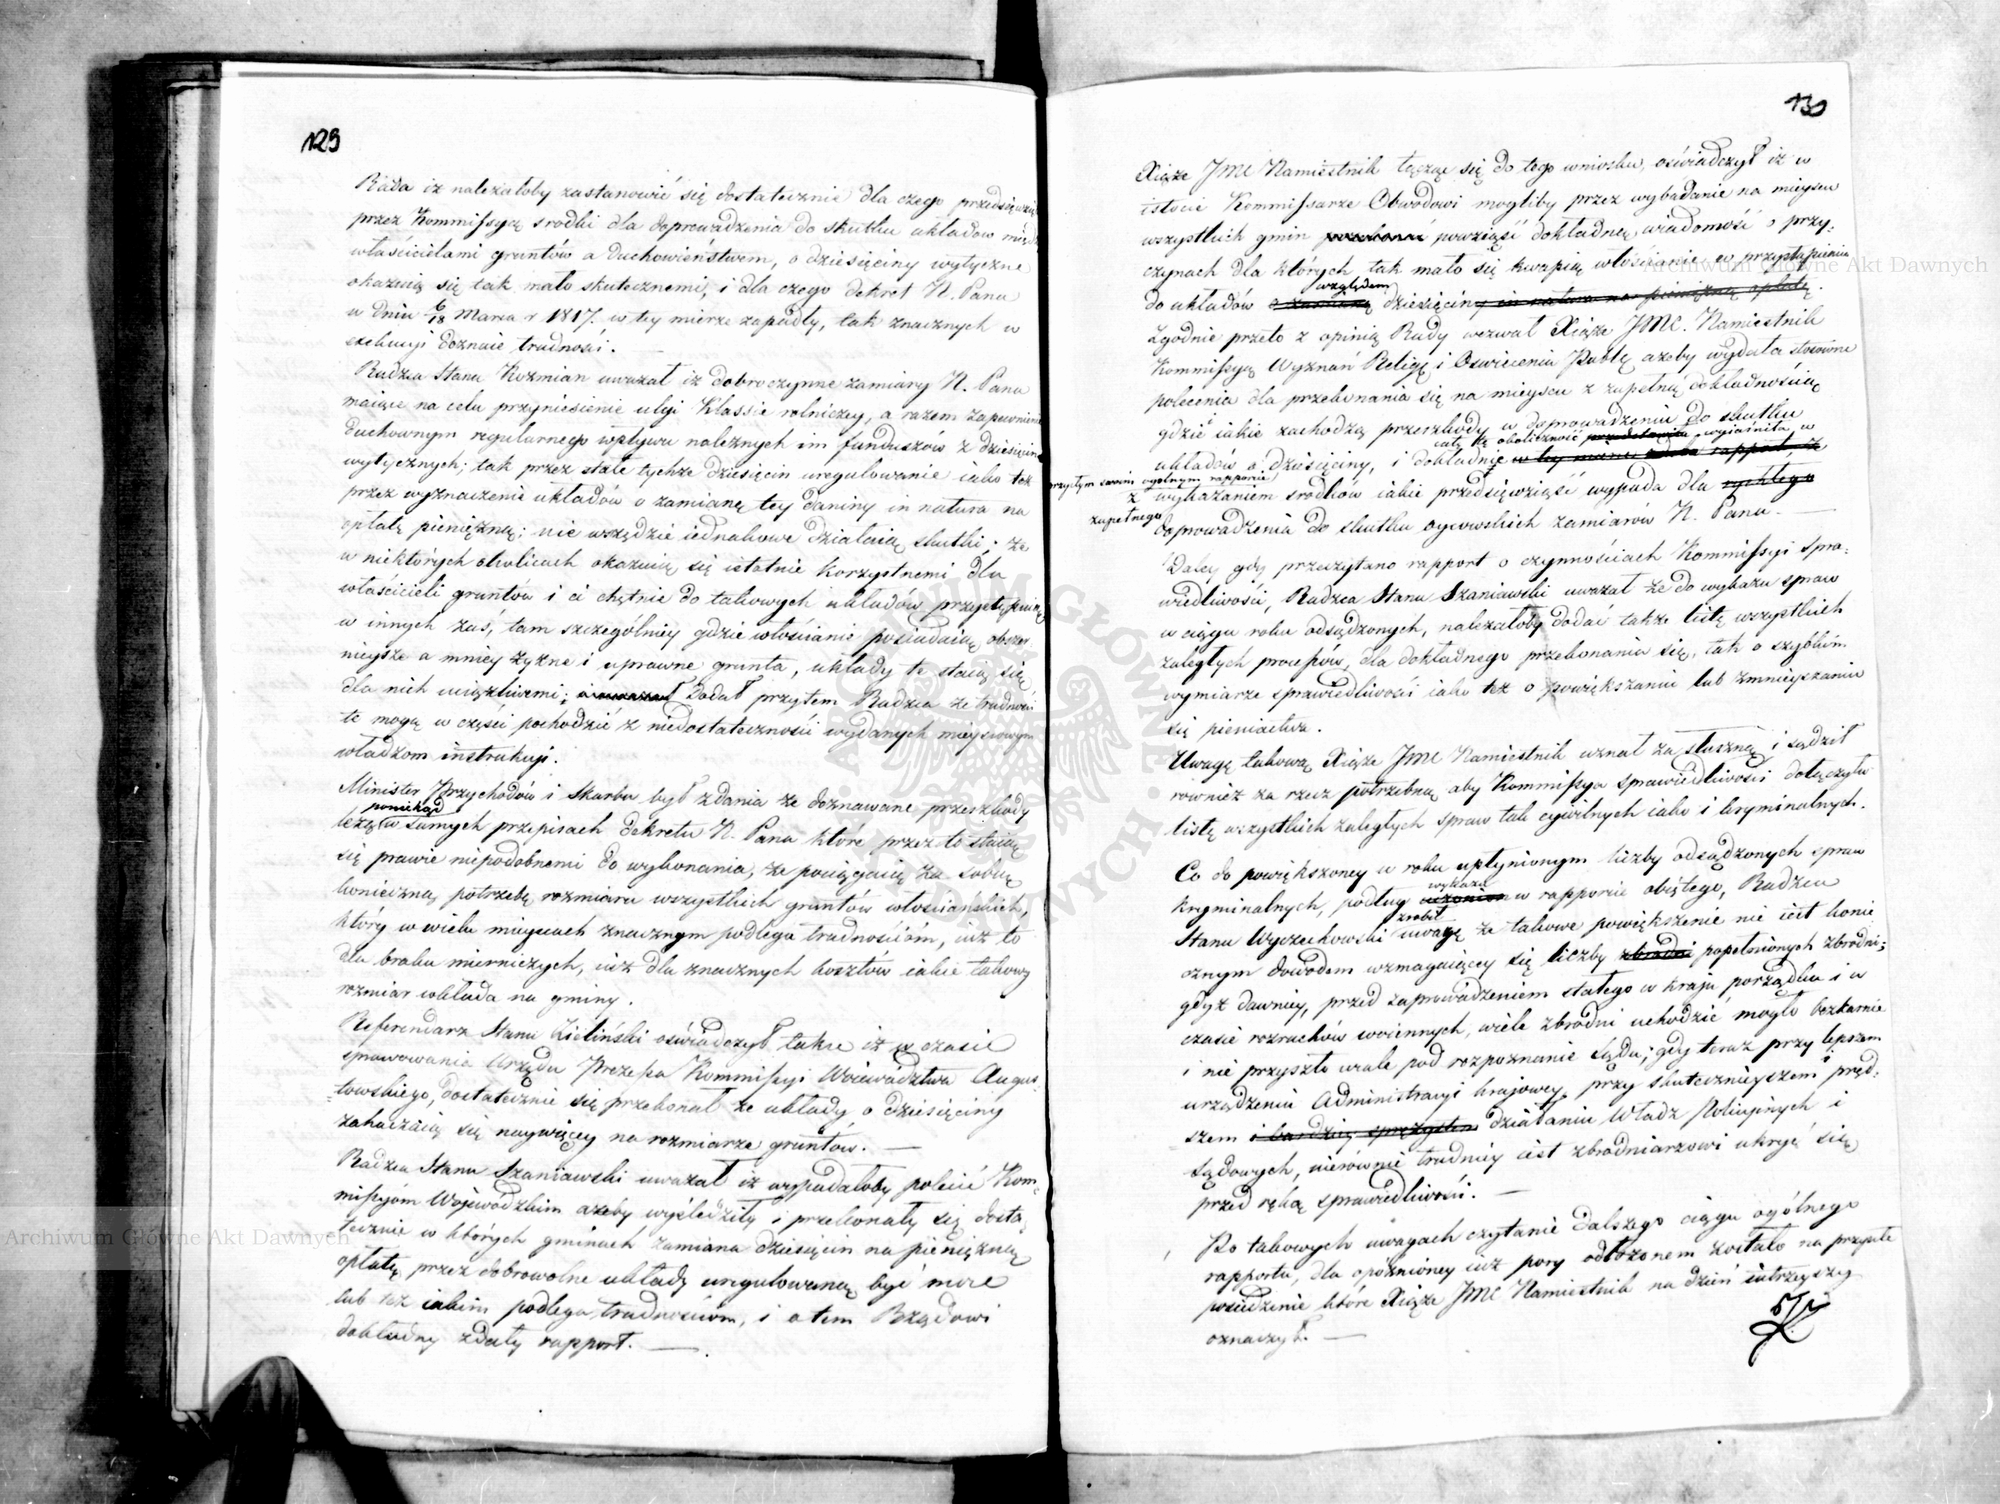 129
Rada iż należałoby zastanowić się dostatecznie dla czego przedsięwzię
przez Kommissyą srodki dla doprowadzenia do skutku układow międz
właścicielami gruntów a Duchowieństwem, o dziesięciny wytyczne
okazuią się tak mało skutecznemi, i dla czego dekret N. Pana
w dniu 6/18 Marca r 1817. w tey mierze zapadły, tak znacznych w
exekucyi doznaie trudności. —
Radzca Stanu Kozmian uważał iż dobroczynne zamiary N. Pana
maiące na celu przyniesienie ulgi Klassie rolniczey, a razem zapewnienie
duchownym regularnego wpływu należnych im funduszów z dziesięcin
wytycznych; tak przez stałe tychże dziesięcin uregulowanie iako też
przez wyznaczenie układów o zamianę tey daniny in natura na
opłatę pieniężną; nie wszędzie iednakowe działaią skutki; że
w niektórych okolicach okazuią się istotnie korzystnemi dla
właścicieli gruntów i ci chętnie do takowych układów przystępuią
w innych zaś, tam szczególniey gdzie włościanie posiadaią obszer
nieysze a mniey żyzne i uprawne grunta, układy te staią się
dla nich uciążliwemi; i uważał Dodał przytem Radzca że trudności
te mogą w części pochodzić z niedostateczności wydanych mieyscowym
władzom instrukcyi.
Minister Przychodów i Skarbu był zdania że doznawane przeszkody
poniekąd
leżą w samych przepisach dekretu N. Pana które przez to staią
się prawie niepodobnemi do wykonania, że pociągaią za sobą
konieczną potrzebę rozmiaru wszystkich gruntów włościańskich,
który w wielu mieyscach znacznym podlega trudnościom, iuż to
dla braku mierniczych, iuż dla znacznych kosztów iakie takowy
rozmiar wkłada na gminy.
Referendarz Stanu Zieliński oświadczył także iż w czasie
sprawowania Urzędu Prezesa Kommissyi Woiewództwa Augus
towskiego, dostatecznie się przekonał że układy o dziesięciny
zahaczaią się naywięcey na rozmiarze gruntów. —
Radzca Stanu Szaniawski uważał iż wypadałoby polecić Kom-
missyóm Woiewódzkim ażeby wyśledziły i przekonały się dosta
tecznie w których gminach zamiana dziesięcin na pieniężną
opłatę przez dobrowolne układy uregulowaną być może
lub też iakim podlega trudnościom, i o tem Rządowi
dokładny zdały rapport. —
130
Xiąże JMC Namiestnik łącząc się do tego wniosku, oświadczył iż w
istocie Kommissarze Obwodowi mogliby przez wybadanie na mieyscu
wszystkich gmin powziąść dokładną wiadomość o przy-
czynach dla których tak mało się kwapią włościanie w przystąpieniu
względem
do układów o zamianę dziesięciny in natura na pieniężną opłatę.
Zgodnie przeto z opinią Rady wezwał Xiąże JMC. Namiestnik
Kommissyą Wyznań Religi i Oswiecenia Publ. ażeby wydała stosowne
polecenia dla przekonania się na mieyscu z zupełną dokładnością
gdzie iakie zachodzą przeszkody w doprowadzeniu do skutku
całą tę okoliczność przedstawiła wyiaśniła w
układów o dziesięciny, i dokładnie w tey mierze zdała rapport, ze
przyszłym swoim ogolnym rapporcie
z wykazaniem srodków iakie przedsięwziąść wypada dla rychłego
zupełnego
doprowadzenia do skutku oycowskich zamiarów N. Pana. —
Daley gdy przeczytano rapport o czynnościach Kommissyi Spra-
wiedliwości, Radzca Stanu Szaniawski uważał że do wykazu spraw
w ciągu roku odsądzonych, należałoby dodać także listę wszystkich
zaległych processów, dla dokładnego przekonania się, tak o szybkim
wymiarze sprawiedliwości iako też o powiększaniu lub zmnieyszaniu
się pieniactwa.
Uwagę takową Xiąże JMC Namiestnik uznał za słuszną i sądził
również za rzecz potrzebną aby Kommissya sprawiedliwości dołączyła
listę wszystkich zaległych spraw tak cywilnych iako i kryminalnych.
Co do powiększoney w roku upłynionym liczby odsądzonych spraw
wykazu
kryminalnych, podług w rapporcie obiętego, Radzca
zrobił
Stanu Wyczechowski uwagę że takowe powiększenie nie iest konie
cznym dowodem wzmagaiącey się liczby zbrodni popełnionych zbrodni;
gdyż dawniey, przed zaprowadzeniem stałego w kraju porządku i w
czasie rozruchów woiennych, wiele zbrodni uchodzić mogło bezkarnie
i nie przyszło wcale pod rozpoznanie Sądu; gdy teraz przy lepszem
urządzeniu Administracyi kraiowey, przy skutecznieyszem i pręd-
szem i bardziey sprężystem działaniu Władz Policyinych i
Sądowych, nierównie trudniey iest zbrodniarzowi ukryć się
przed ręką sprawiedliwości. —
Po takowych uwagach czytanie dalszego ciągu ogólnego
rapportu, dla opóźnioney iuż pory odłożonem zostało na przyszłe
posiedzenie które Xiąże JMC Namiestnik na dzień iutrzeyszy
oznaczył. —
Archiwum Główne Akt Dawnych
Archiwum Główne Akt Dawnych